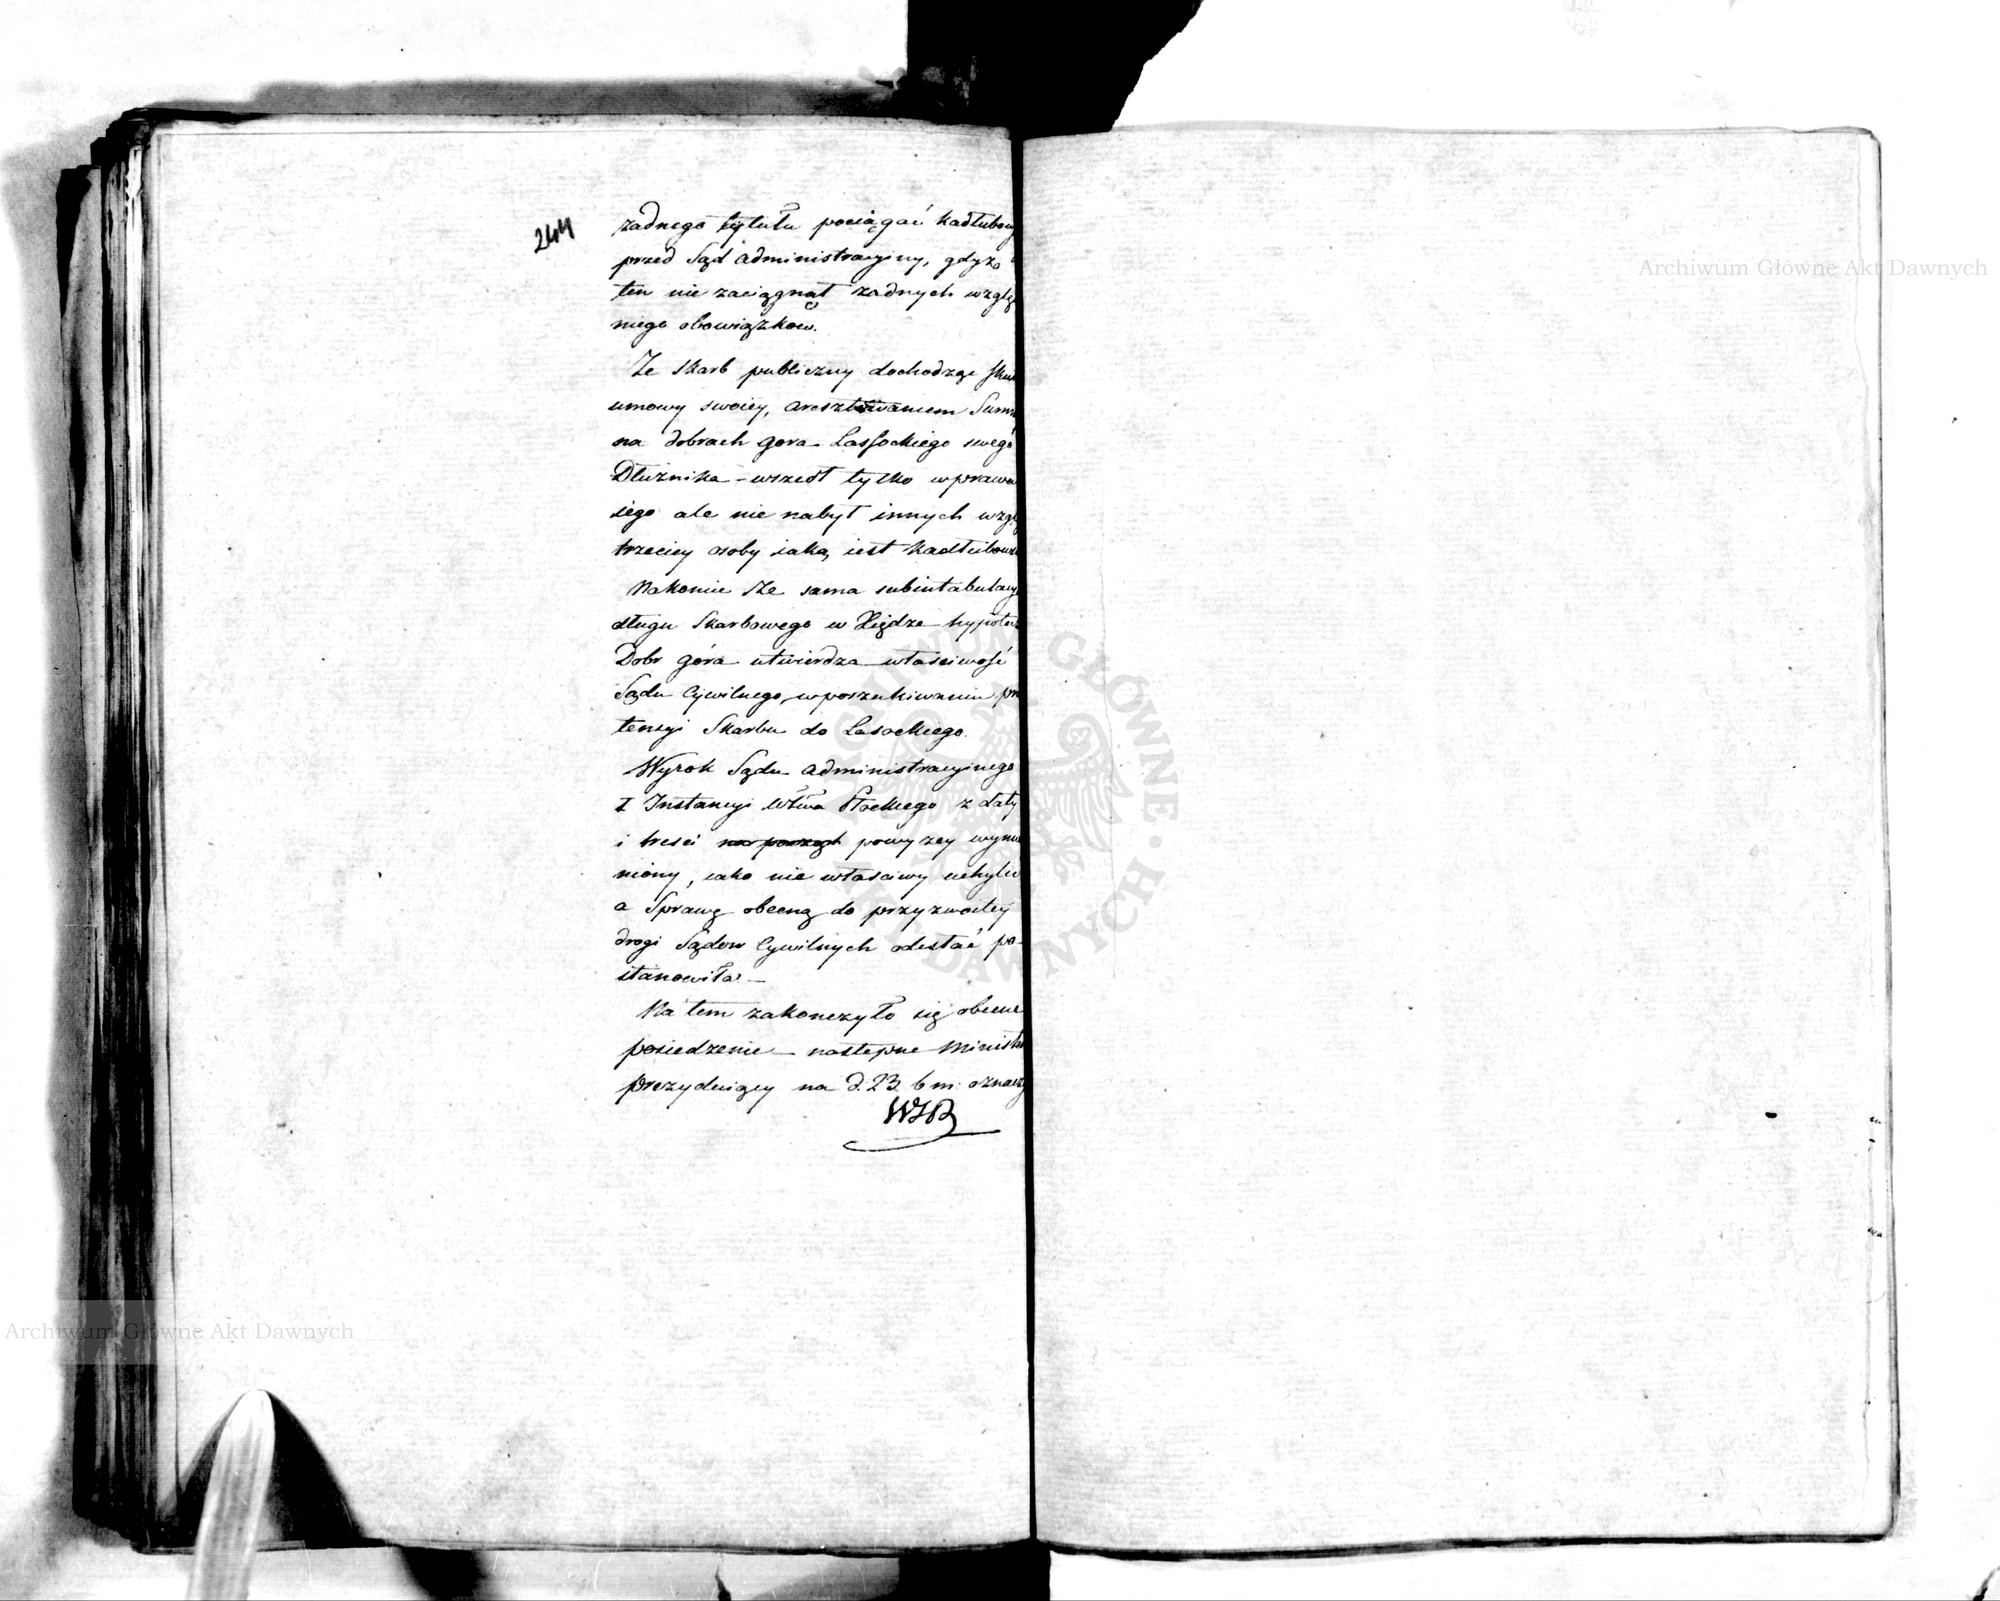 244
żadnego tytułu pociągać Kadłubow
przed Sąd Administracyiny, gdyż
ten nie zaciągnął żadnych wzglę
niego obowiązkow.
Ze Skarb publiczny dochodząc sku
umowy swoiey, aresztowaniem Summ
na dobrach Gora Lassockiego swego
Dłużnika – wszedł tylko w prawa
iego ale nie nabył innych wzglę
trzeciey osoby iaką iest Kadłubow
Nakoniec że sama subintabulacy
długu Skarbowego w Xiędze hypotecz
Dobr Góra utwierdza właściwość
Sądu Cywilnego, w poszukiwaniu pre
tensyi Skarbu do Lasockiego.
Wyrok Sądu Administracyinego
I Instancyi Wtwa Płockiego z daty
i treści powyżey wymie
niony, iako nie właściwy uchylić
a Sprawę obecną do przyzwoitey
drogi Sądow Cywilnych odesłać po-
stanowiła –
Na tem zakonczyło się obecne
posiedzenie – następne Minister
prezyduiący na d. 23. b m: oznaczy
Archiwum Główne Akt Dawnych
Archiwum Główne Akt Dawnych
ARCHIWUM GŁÓWNE AKT DAWNYCH